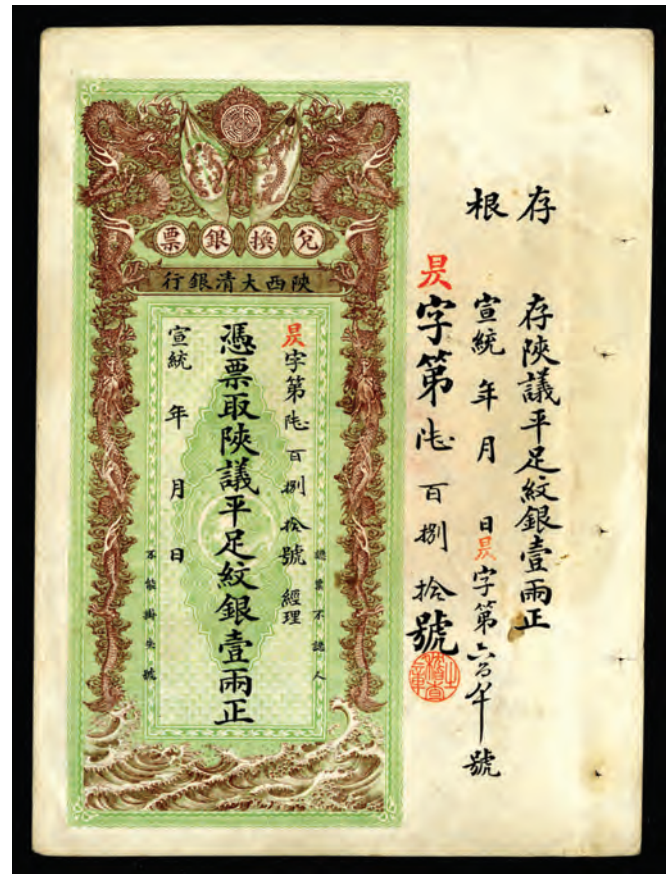 存根
存陝議平足紋銀壹兩正
宣統 年 月 日昃字第六百八十號
昃字第陸百捌拾號
兌換銀票
陝西大清銀行
認票不認人
昃字第陸百捌拾號 經理
憑票取陝議平足紋銀壹兩正
宣統 年 月 日
不能掛失號